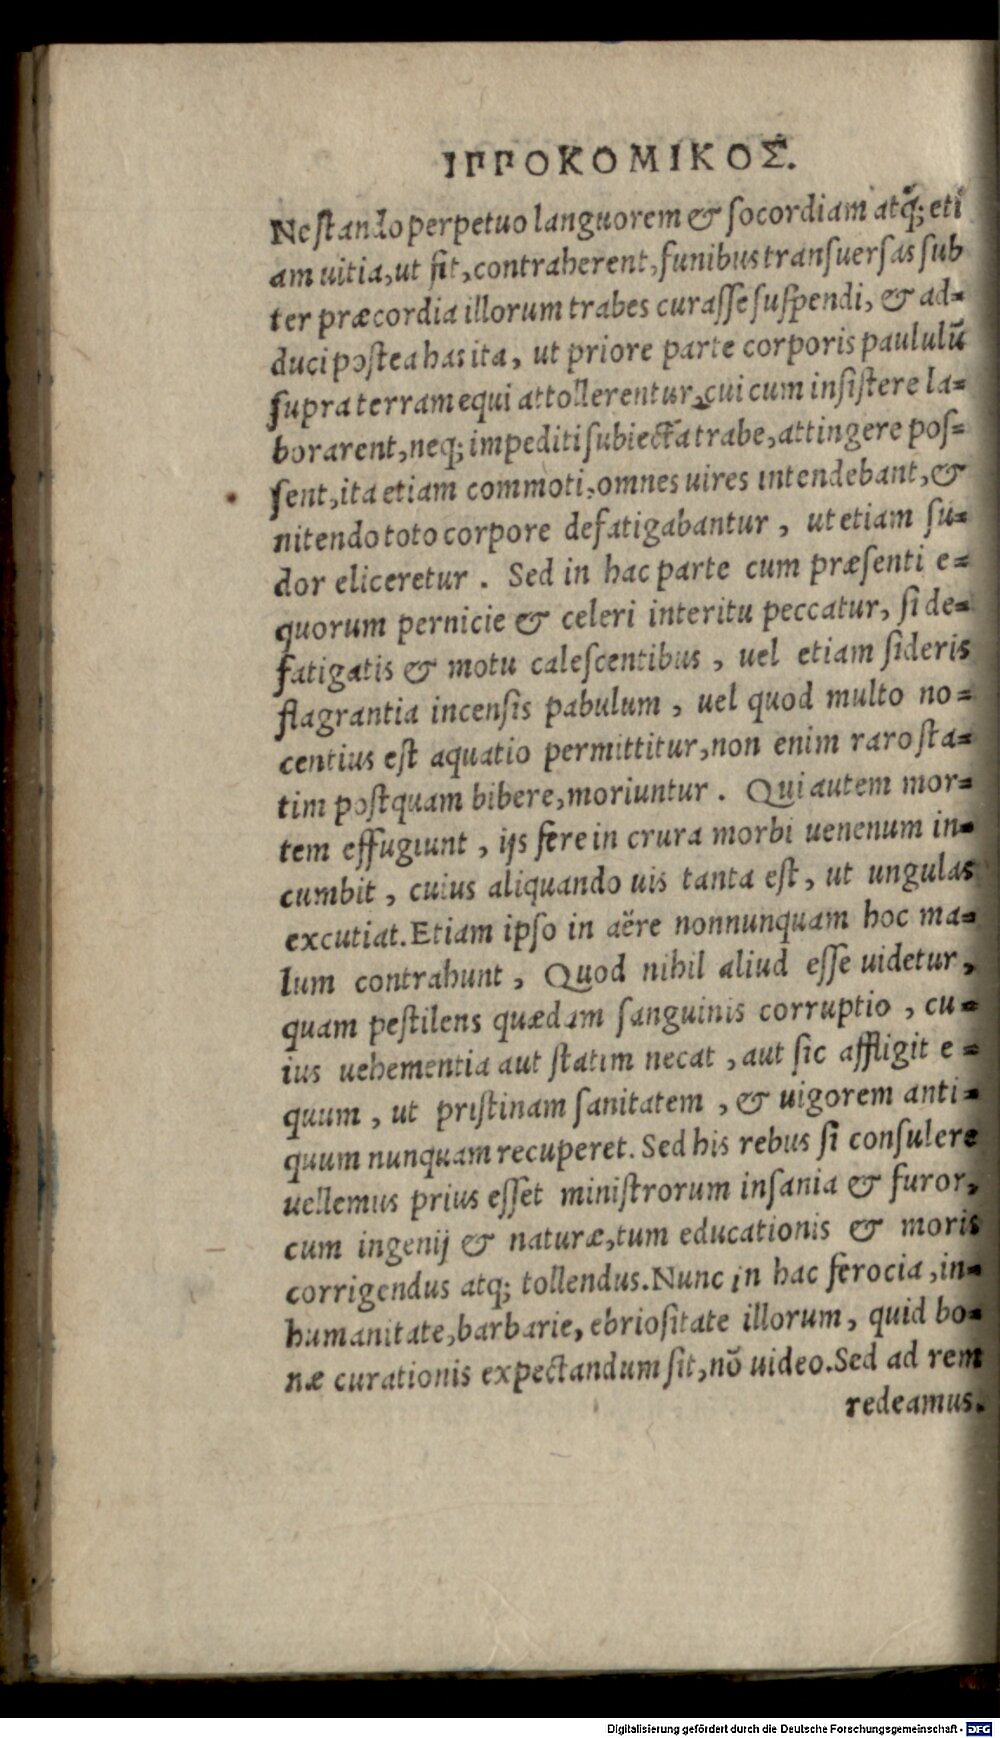 ΙΠΠΟΚΟΜΙΚΟΣ.
Ne stando perpetuo languorem & socordiam atq̃; eti
am uitia, ut fit, contraherent, funibus transuersas sub
ter præcordia illorum trabes curasse suspendi, & ad=
duci postea has ita, ut priore parte corporis paululũ
supra terram equi attollerentur, cui cum insistere la=
borarent, neq; impediti subiecta trabe, attingere pos=
sent, ita etiam commoti, omnes uires intendebant, &
nitendo toto corpore defatigabantur, ut etiam su=
dor eliceretur. Sed in hac parte cum præsenti e=
quorum pernicie & celeri interitu peccatur, si de=
fatigatis & motu calescentibus, uel etiam sideris
flagrantia incensis pabulum, uel quod multo no=
centius est aquatio permittitur, non enim raro sta=
tim postquam bibere, moriuntur. Qui autem mor=
tem effugiunt, ijs fere in crura morbi uenenum in=
cumbit, cuius aliquando uis tanta est, ut ungulas
excutiat. Etiam ipso in aëre nonnunquam hoc ma=
lum contrahunt, Quod nihil aliud esse uidetur,
quam pestilens quædam sanguinis corruptio, cu=
ius uehementia aut statim necat, aut sic affligit e=
quum, ut pristinam sanitatem, & uigorem anti=
quum nunquam recuperet. Sed his rebus si consulere
uellemus prius esset ministrorum insania & furor,
cum ingenij & naturæ, tum educationis & moris
corrigendus atq; tollendus. Nunc in hac ferocia, in=
humanitate, barbarie, ebriositate illorum, quid bo=
næ curationis expectandum sit, nõ uideo. Sed ad rem
redeamus.
Digitalisierung gefördert durch die Deutsche Forschungsgemeinschaft - DFG